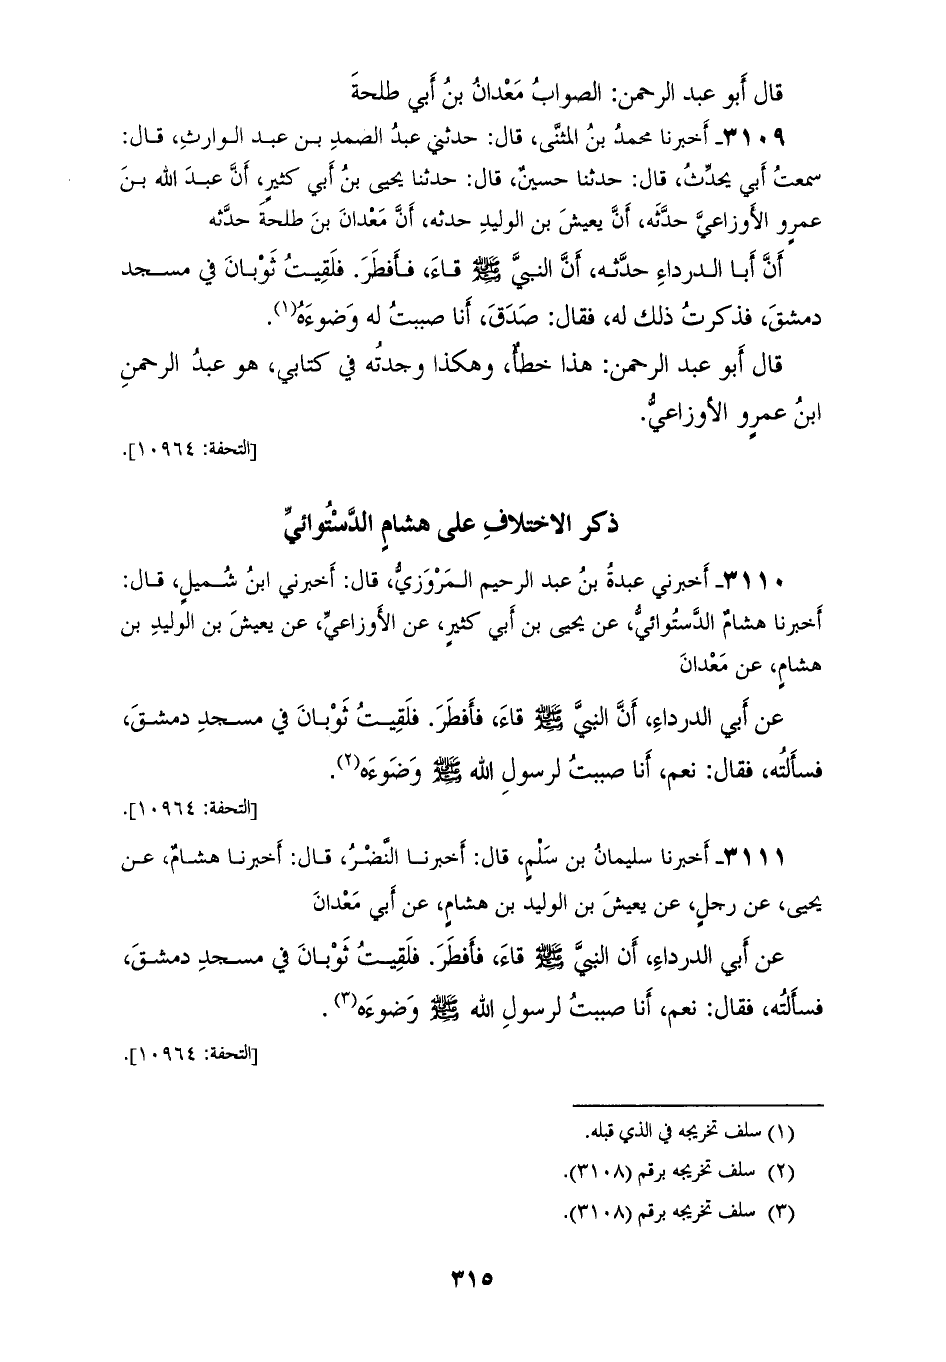 قال أَبو عبد الرحمن: الصوابُ مَعْدانُ بنُ أَبي طلحةَ
٣١٠٩ـ أَخبرنا محمدُ بنُ المثنَّى، قال: حدثني عبدُ الصمدِ بـن عبـد الـوارثِ، قـال:
سمعتُ أَبي يحدِّثُ، قال: حدثنا حسينٌ، قال: حدثنا يحيى بنُ أبي كثيرٍ، أنَّ عبـدَ الله بـنَ
عمرٍو الأَوزاعيَّ حدَّثَه، أنَّ يعيشَ بن الوليدِ حدثه، أنَّ مَعْدانَ بنَ طلحةَ حدَّثه
أَنَّ أَبـا الـدرداءِ حدَّثـه، أَنَّ النبـيَّ ﷺ قـاءَ، فـأَفطَرَ. فلَقِيـتُ ثَوْبـانَ في مسـجد
دمشقَ، فذكرتُ ذلك له، فقال: صَدَقَ، أَنا صببتُ له وَضوءَهُ(١).
قال أَبو عبد الرحمن: هذا خطأٌ، وهكذا وجدتُه في كتابي، هو عبدُ الرحمنِ
ابنُ عمرٍو الأَوزاعيُّ.
[التحفة: ١٠٩٦٤].
ذكر الاختلافِ على هشامٍ الدَّسْتُوائيِّ
٣١١٠ـ أَخبرني عبدةُ بنُ عبد الرحيم الـمَرْوَزيُّ، قال: أَخبرني ابنُ شُـميلٍ، قـال:
أَخبرنا هشامٌ الدَّستُوائيُّ، عن يحيى بن أَبي كثيرٍ، عن الأَوزاعيِّ، عن يعيشَ بن الوليدِ بن
هشامٍ، عن مَعْدانَ
عن أَبي الدرداءِ، أَنَّ النبيَّ ﷺ قاءَ، فأَفطَرَ. فلَقِيـتُ ثَوْبـانَ في مسـجدِ دمشـقَ،
فسأَلتُه، فقال: نعم، أَنا صببتُ لرسولِ الله ﷺ وَضَوءَه(٢).
[التحفة: ١٠٩٦٤].
٣١١١ـ أَخبرنا سليمانُ بن سَلْمٍ، قال: أَخبرنـا النَّضْرُ، قـال: أَخبرنـا هشـامٌ، عـن
يحيى، عن رجلٍ، عن يعيشَ بن الوليد بن هشامٍ، عن أَبي مَعْدانَ
عن أَبي الدرداءِ، أَن النبيَّ ﷺ قاءَ، فأَفطَرَ. فلَقِيـتُ ثَوْبـانَ في مسـجدِ دمشـقَ،
فسأَلتُه، فقال: نعم، أَنا صببتُ لرسولِ الله ﷺ وَضوءَه(٣).
[التحفة: ١٠٩٦٤].
(١) سلف تخريجه في الذي قبله.
(٢) سلف تخريجه برقم (٣١٠٨).
(٣) سلف تخريجه برقم (٣١٠٨).
٣١٥